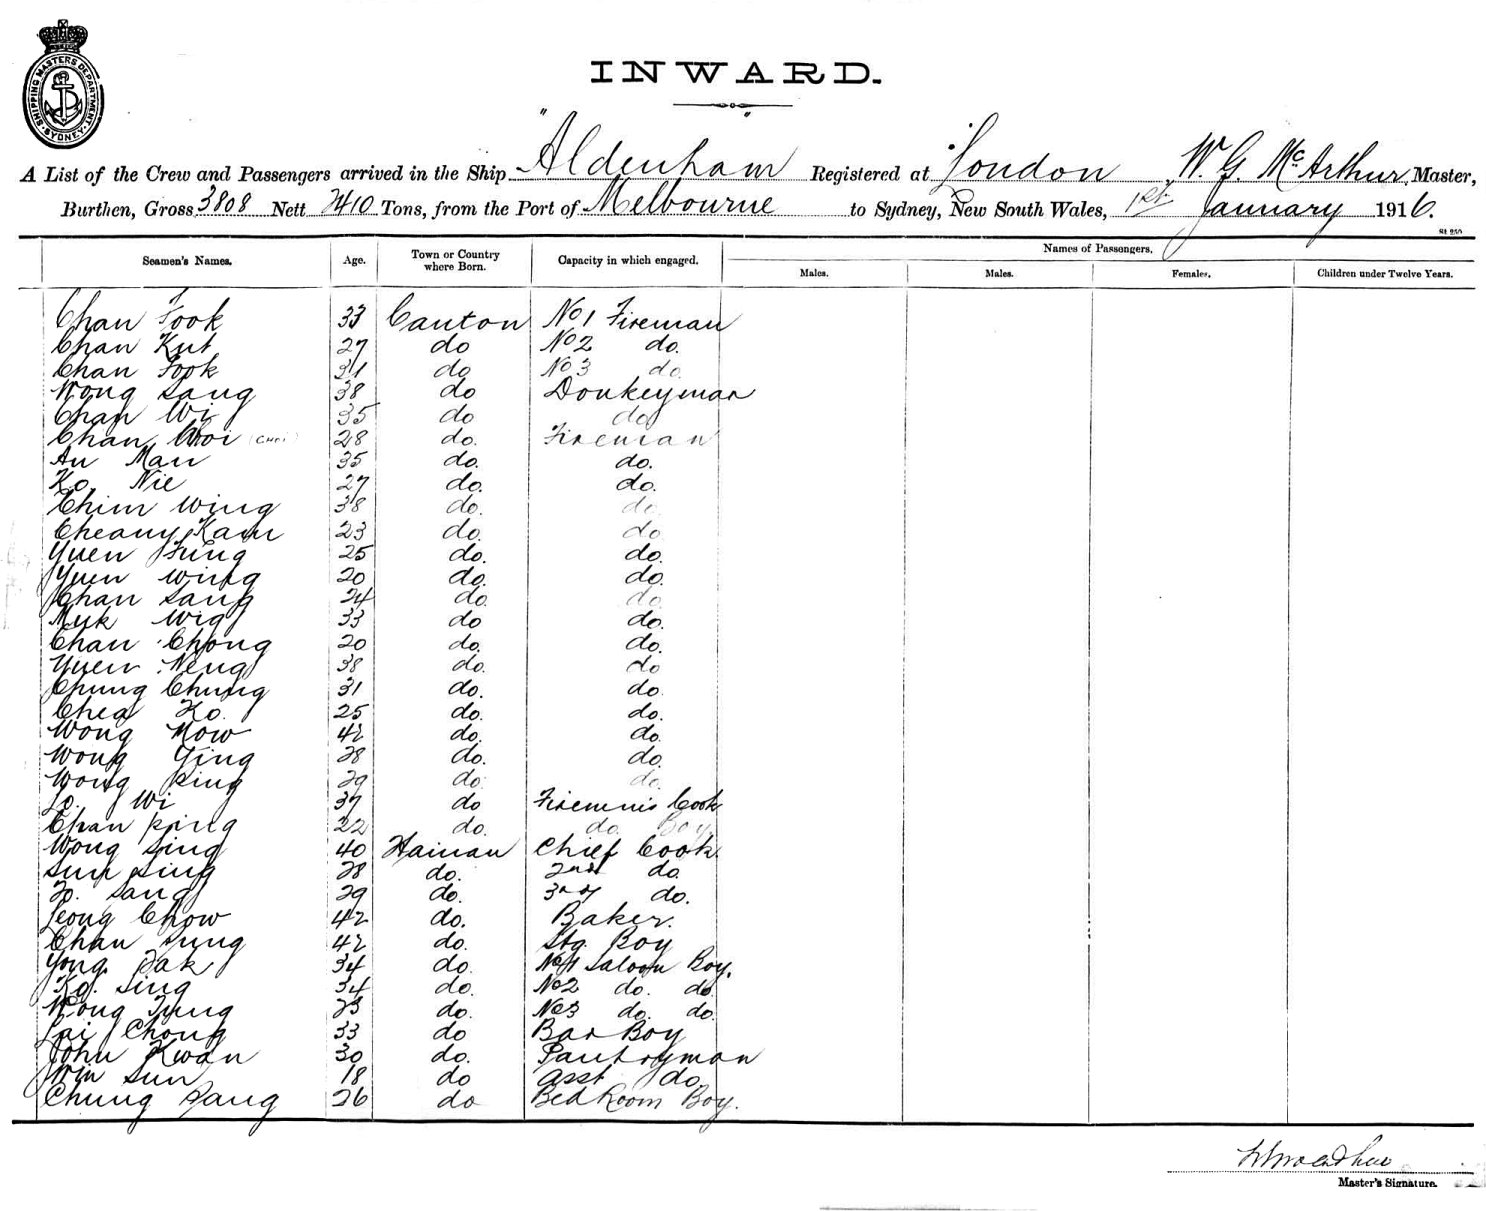 SHIPPING MASTERS DEPARTMENT
SYDNEY
INWARD.
A List of the Crew and Passengers arrived in the Ship "Aldenham" Registered at London, W. G. McArthur, Master,
Burthen, Gross 3808 Nett 2410 Tons, from the Port of Melbourne to Sydney, New South Wales, 1st January 1916.
Seamen's Names. Age. Town or Country where Born. Capacity in which engaged. Names of Passengers.
Males. Males. Females. Children under Twelve Years.
Chan Fook 33 Canton No 1 Fireman
Chan Kut 27 do No 2 do.
Chan Fook 31 do No 3 do.
Wong Sang 38 do Donkeyman
Chan Wi 35 do do
Chan Choi (CHOI) 28 do. Fireman
Au Man 35 do. do.
Ko Nie 27 do. do.
Chim Wing 38 do. do.
Cheang Kam 23 do. do
Yuen Fung 25 do. do.
Yuen Wing 20 do. do.
Chan Sang 24 do. do
Muk Wig 33 do do.
Chan Chong 20 do. do.
Yuen Neng 38 do. do
Chung Chung 31 do. do.
Chea Ko. 25 do. do.
Wong Mow 42 do. do.
Wong Ying 28 do. do.
Wong King 29 do. do.
Lo. Wi 37 do Firemens Cook
Chan King 22 do. do. Boy.
Wong Sing 40 Hainan Chief Cook.
Sun Sing 28 do. 2nd do.
Fo. Sang 29 do. 3rd do.
Leong Chow 42 do. Baker.
Chan Sung 42 do. Stg. Boy
Yong Pak 34 do. No 1 Saloon Boy.
Ko. Sing 34 do. No 2 do. do.
Wong Tung 23 do. No 3 do. do.
Lai Chong 33 do Bar Boy
John Kwan 30 do. Pantryman
Win Sun 18 do asst do.
Chung Sang 26 do Bed Room Boy.
Master's Signature.